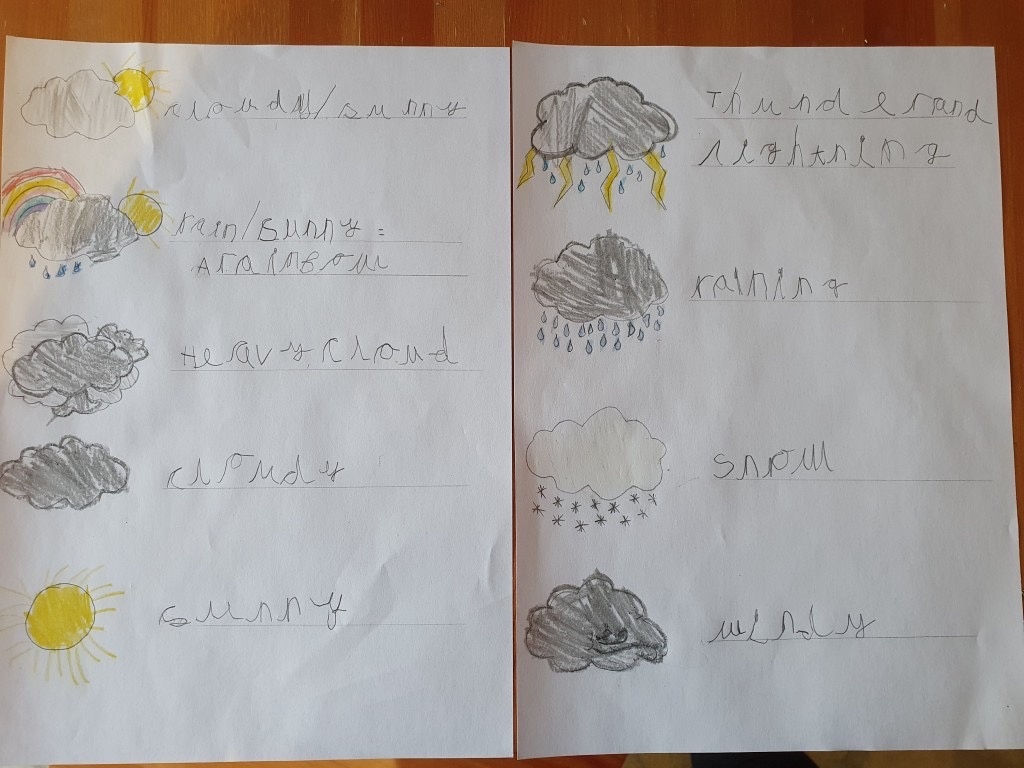 cloudy/sunny
rain/sunny =
A rainbow
Heavy cloud
cloudy
sunny
Thunder and
lightning
raining
snow
windy